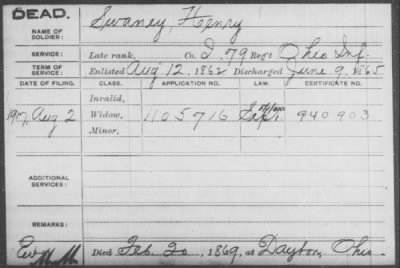 DEAD.
NAME OF SOLDIER: Swaney, Henry
SERVICE: Late rank, Co. I, 79 Reg't Ohio Inf.
TERM OF SERVICE: Enlisted Aug 12, 1862 Discharged June 9, 1865
DATE OF FILING. CLASS. APPLICATION NO. LAW. CERTIFICATE NO.
Invalid,
1917, Aug 2 Widow, 1105716 940903
Minor,
ADDITIONAL SERVICES:
REMARKS:
Died Feb. 20, 1869, at Dayton, Ohio